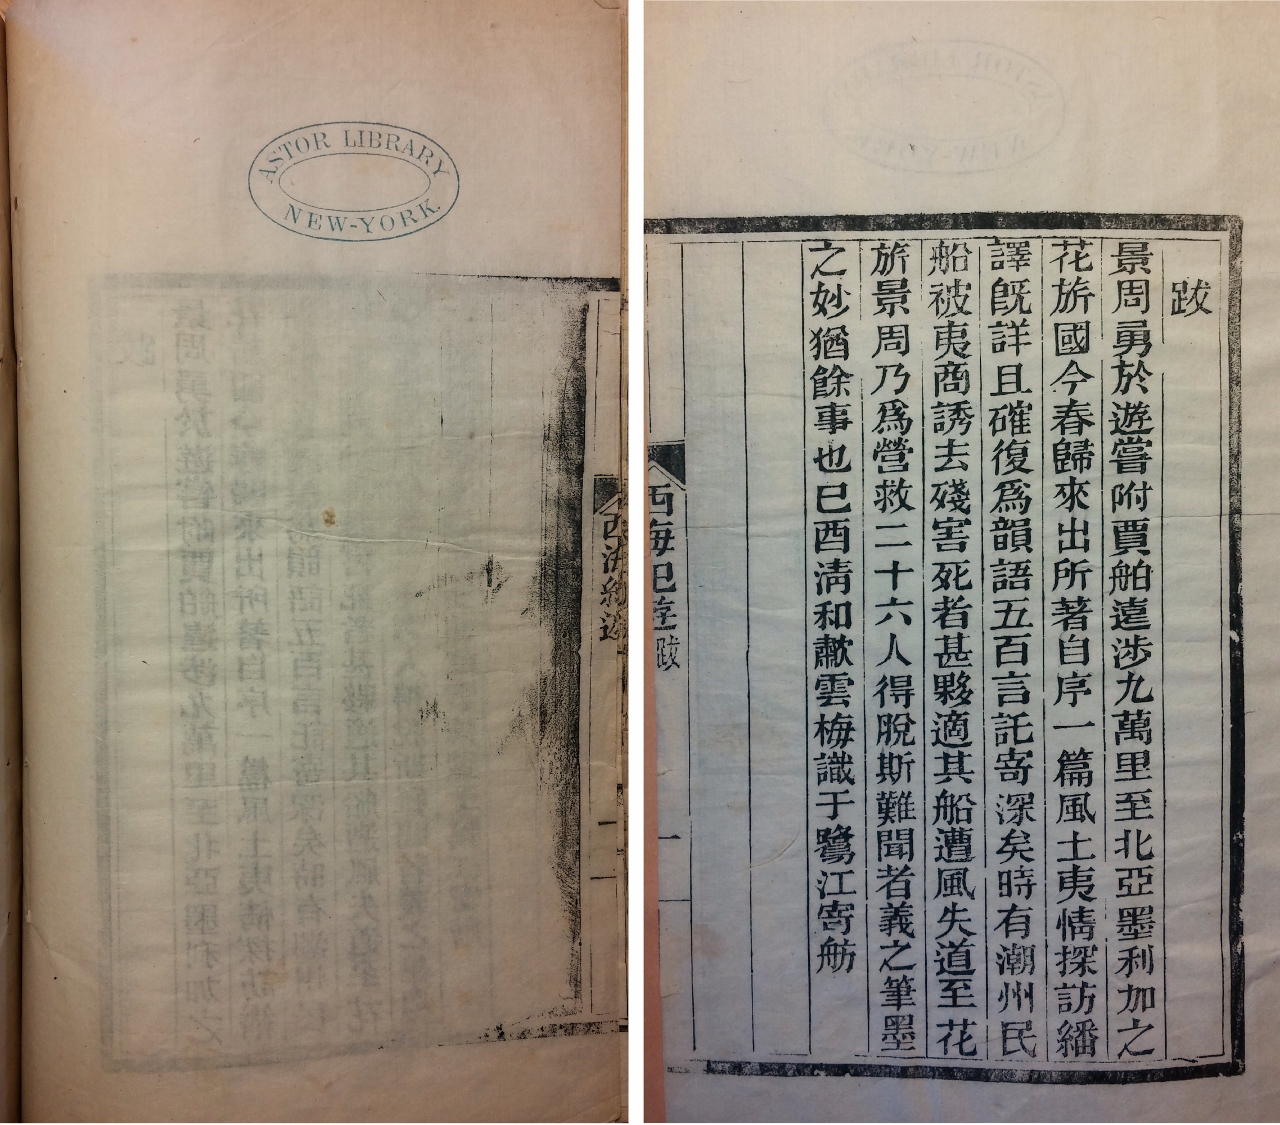 ASTOR LIBRARY
NEW-YORK.
跋
景周勇於遊嘗附賈舶遠涉九萬里至北亞墨利加之
花旂國今春歸來出所著自序一篇風土夷情探訪繙
譯旣詳且確復爲韻語五百言託寄深矣時有潮州民
船被夷商誘去殘害死者甚夥適其船遭風失道至花
旂景周乃爲營救二十六人得脫斯難聞者義之筆墨
之妙猶餘事也已酉淸和歗雲梅識于鷺江寄舫
西海紀遊 跋
一
西海紀遊
一